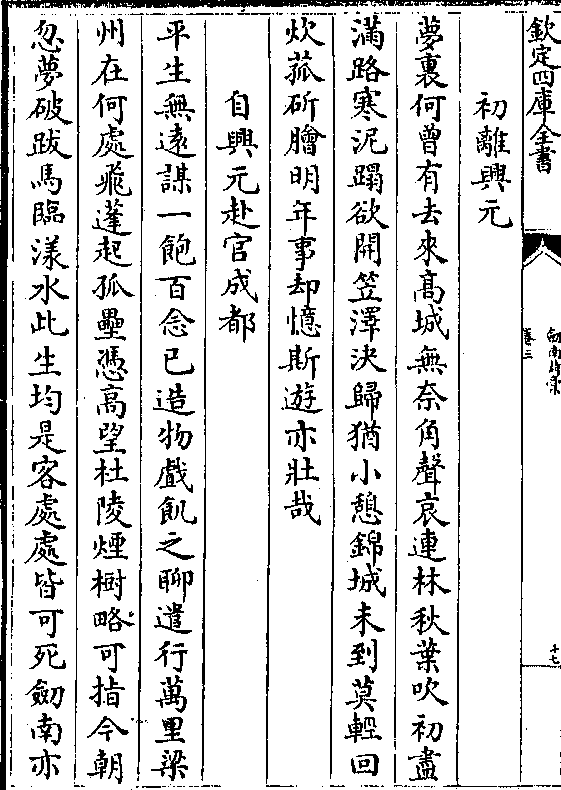 欽定四庫全書
劍南詩稾
卷三
十七
初離興元
夢裏何曾有去來髙城無奈角聲哀連林秋葉吹初盡
滿路寒泥蹋欲開笠澤決歸猶小憩錦城未到莫輕回
炊菰斫膾明年事却憶斯遊亦壯哉
自興元赴官成都
平生無遠謀一飽百念已造物戲飢之聊遣行萬里梁
州在何處飛蓬起孤壘憑髙望杜陵煙樹略可指今朝
忽夢破跋馬臨漾水此生均是客處處皆可死劒南亦